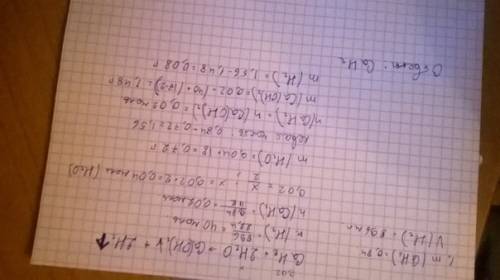 1. m(CaH₂)=0,84
V(H₂)=896 мл
0,02
CaH₂+2H₂O → Ca(OH)₂↓ + 2H₂↑
n(H₂)=896/22,4=40 моль
n(CaH₂)=0,84/42=0,02 моль
0,02=x/2; x=0,02·2=0,04 моль (H₂O)
m(H₂O)=0,04·18=0,72 г
левая часть: 0,84+0,72=1,56
n(CaH₂)=n(Ca(OH)₂)=0,02 моль
m(Ca(OH)₂)=0,02·(40+(17·2))=1,48 г
m(H₂)=1,56-1,48=0,08 г
Ответ: CaH₂